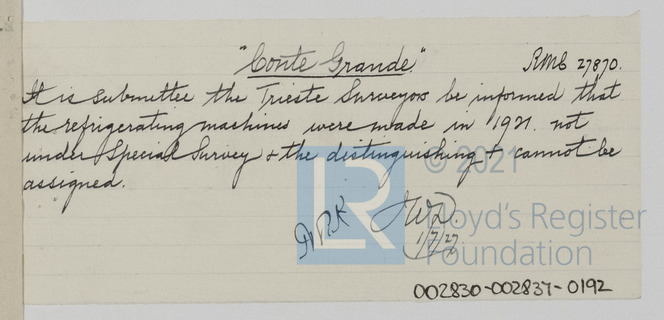 "Conte Grande." RMC 27870.
It is submitted the Trieste Surveyors be informed that
the refrigerating machines were made in 1921. not
under Special Survey & the distinguishing + cannot be
assigned.
© 2021
LR
Lloyd's Register
Foundation
1/7/27
002830-002837-0192